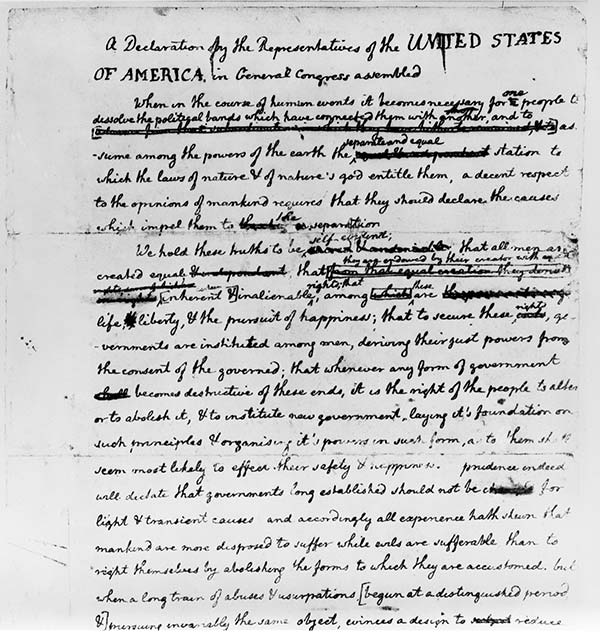 A Declaration by the Representatives of the UNITED STATES
OF AMERICA, in General Congress assembled
When in the course of human events it becomes necessary for one people to
dissolve the political bands which have connected them with another, and to
as-
separate and equal
-sume among the powers of the earth the station to
which the laws of nature & of nature's god entitle them, a decent respect
to the opinions of mankind requires that they should declare the causes
which impel them to the separation
self-evident;
We hold these truths to be that all men are
they are endowed by their creator with
created equal & independant, that from that equal creation they derive
rights; that these
inherent & inalienable, among which are
rights
life, liberty, & the pursuit of happiness; that to secure these, go-
-vernments are instituted among men, deriving their just powers from
the consent of the governed; that whenever any form of government
shall becomes destructive of these ends, it is the right of the people to alter
or to abolish it, & to institute new government, laying it's foundation on
such principles & organising it's powers in such form, as to them shall
seem most likely to effect their safety & happiness. prudence indeed
will dictate that governments long established should not be changed for
light & transient causes and accordingly all experience hath shewn that
mankind are more disposed to suffer while evils are sufferable than to
right themselves by abolishing the forms to which they are accustomed. but
when a long train of abuses & usurpations [begun at a distinguished period
&] pursuing invariably the same object, evinces a design to reduce